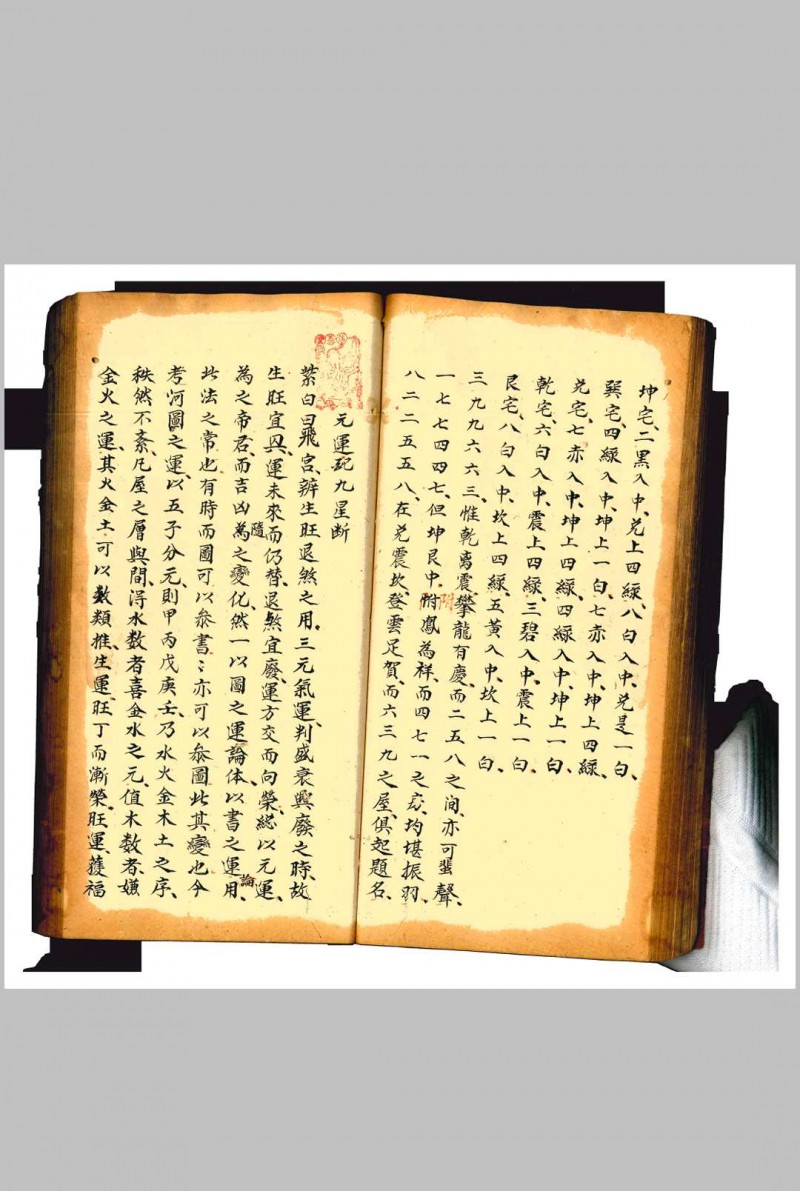 坤宅、二黑入中、兑上四綠、八白入中、兑是一白、
巽宅、四綠入中、坤上一白、七赤入中、坤上四綠、
兑宅、七赤入中、坤上四綠、四綠入中、坤上一白、
乾宅、六白入中、震上四綠、三碧入中、震上一白、
艮宅、八白入中、坎上四綠、五黃入中、坎上一白、
三九九六六三、惟乾离震、攀龍有慶、而二五八之间、亦可蜚聲、
一七七四四七、但坤艮中、附鳳為祥、而四七一之房、均堪振羽、
八二二五五八、在兑震坎、登雲足賀、而六三九之屋、俱起題名、
元運配九星断
紫白曰飛宫、辨生旺退煞之用、三元氣運、判盛衰興廢之時、故
生旺宜興、運未來而仍替、退煞宜廢、運方交而尚榮、総以元運、
為之帝君、而吉凶為之隨變化、然一以圖之運論体、以書之運論用、
此法之常也、有時而圖可以叅書、書亦可以叅圖、此其變也、今
考河圖之運、以五子分元、則甲丙戊庚壬、乃水火金木土之序、
秩然不紊、凡屋之層與間、得水数者喜金水之元、值木数者、嫌
金火之運、其火金土可以数類推、生運、旺丁而漸榮、旺運、獲福